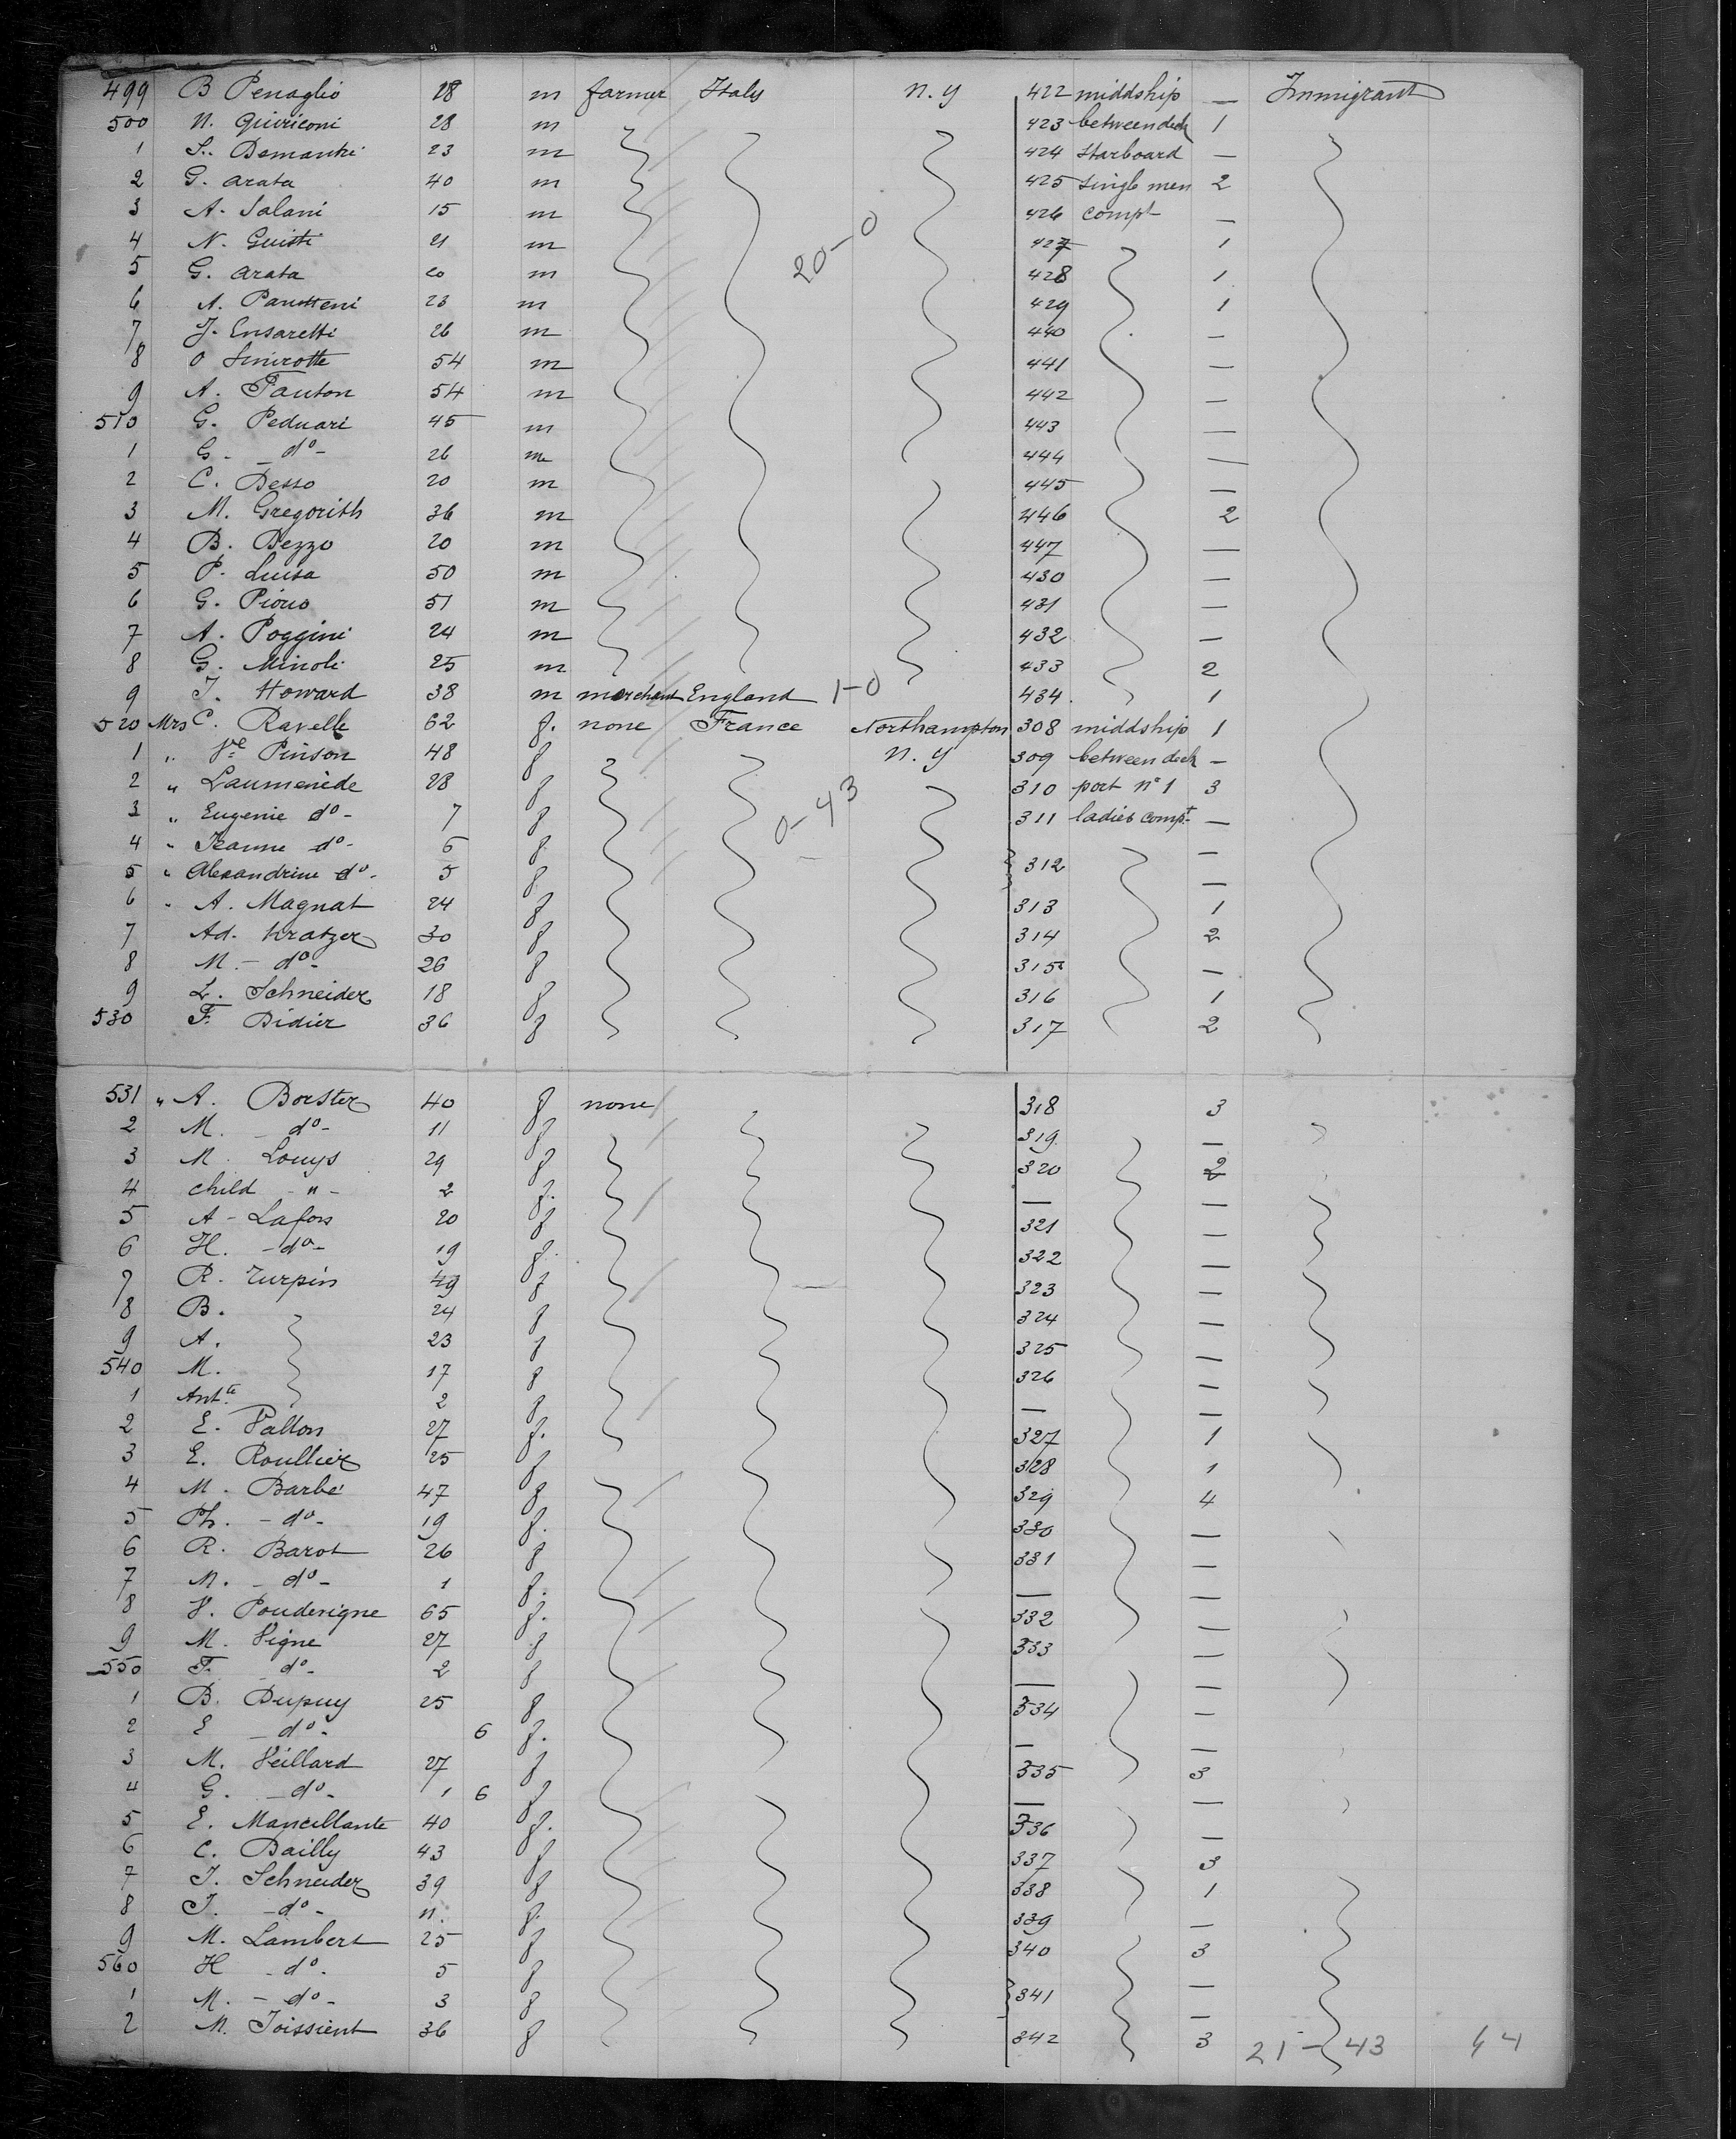 499 B Penaglio 28 m farmer Italy n.y 422 middship — Immigrant
500 N. Quiriconi 28 m 423 between deck 1
1 S. Demantri 23 m 424 Starboard —
2 G. Arata 40 m 425 Single men 2
3 A. Salani 15 m 426 compt —
4 N. Guisti 21 m 427 1
5 G. Arata 20 m 20-0 428 1
6 A. Panetteni 23 m 429 1
7 J. Ensaretti 26 m 440 —
8 O 54 m 441 —
9 A. Fanton 54 m 442 —
510 G. Peduari 45 m 443 —
1 G. do 26 m 444 —
2 C. Desso 20 m 445 —
3 M. Gregorith 36 m 446 2
4 B. Bezzo 20 m 447 —
5 P. Luisa 50 m 430 —
6 G. Piono 51 m 431 —
7 A. Poggini 24 m 432 —
8 G. Minoli 25 m 433 2
9 J. Howard 38 m merchant England 1-0 434 1
520 Mrs C. Ravelle 62 f. none France Northampton 308 middship 1
1 " Ve Pinson 48 f n.y 309 between deck —
2 " Laumenède 28 f 310 port n° 1 3
3 " Eugenie do 7 f 0-43 311 ladies compt —
4 " Jeanne do 6 f —
5 " Alexandrine do 5 f 312 —
6 " A. Magnat 24 f 313 1
7 Ad. Kratzer 30 f 314 2
8 M. do 26 f 315 —
9 L. Schneider 18 f 316 1
530 F. Didier 36 f 317 2
531 " A. Borster 40 f none 318 3
2 M. do 11 f 319 —
3 M. Louys 29 f 320 2
4 child " 2 f. — —
5 A. Lafon 20 f 321 —
6 H. do 19 f. 322 —
7 R. Turpin 49 f 323 —
8 B. 24 f 324 —
9 A. 23 f 325 —
540 M. 17 f 326 —
1 Antte 2 f — —
2 E. Vallon 27 f. 327 1
3 E. Roullier 25 f 328 1
4 M. Barbé 47 f 329 4
5 Ph. do 19 f. 330 —
6 R. Barot 26 f 331 —
7 M. do 1 f. — —
8 V. Pouderigne 65 f. 332 —
9 M. Vigne 27 f 333 —
550 F. do 2 f — —
1 B. Dupuy 25 f 334 —
2 E do 6 f. — —
3 M. Veillard 27 f 335 3
4 G. do 1 6 f — —
5 E. Mancillante 40 f. 336 —
6 C. Bailly 43 f 337 3
7 J. Schneider 39 f 338 1
8 J. do 11. f. 339 —
9 M. Lambert 25 f 340 3
560 H do 5 f —
1 M. do 3 f 341 —
2 M. Joissient 36 f 342 3 21-43 64